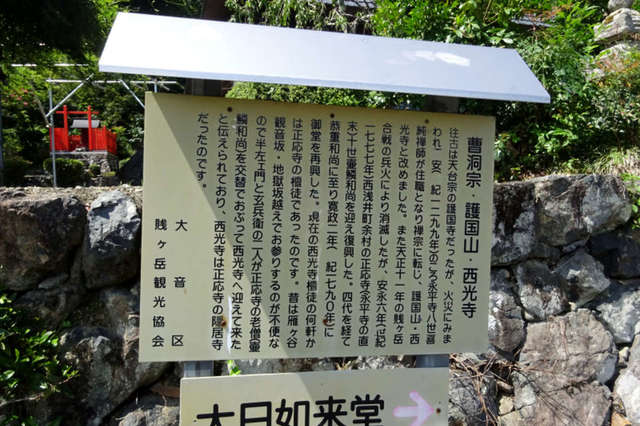 曹洞宗・護国山・西光寺
往古は天台宗の護国寺だったが、火災にみま
われ、安(紀一二九九年)のころ永平寺八世喜
純禅師が住職となり禅宗に転じ、護国山・西
光寺と改めました。また天正十一年の賤ヶ岳
合戦の兵火により消滅したが、安永六年(紀
一七七七年)西浅井町余村の正応寺(永平寺の直
末)十世壷鱗和尚を迎え復興した。四代を経て
恭董和尚に至り寛政二年(紀一七九〇年)に
御堂を再興した。現在の西光寺檀徒の何軒か
は正応寺の檀徒であったのです。昔は雁ヶ谷
観音坂・地獄坂越えでお参りするのが不便な
ので半左ェ門と玄兵衛の二人が正応寺の老僧壷
鱗和尚を交替でおぶって西光寺へ迎えて来た
と伝えられており、西光寺は正応寺の隠居寺
だったのです。
大音区
賤ヶ岳観光協会
大日如来堂